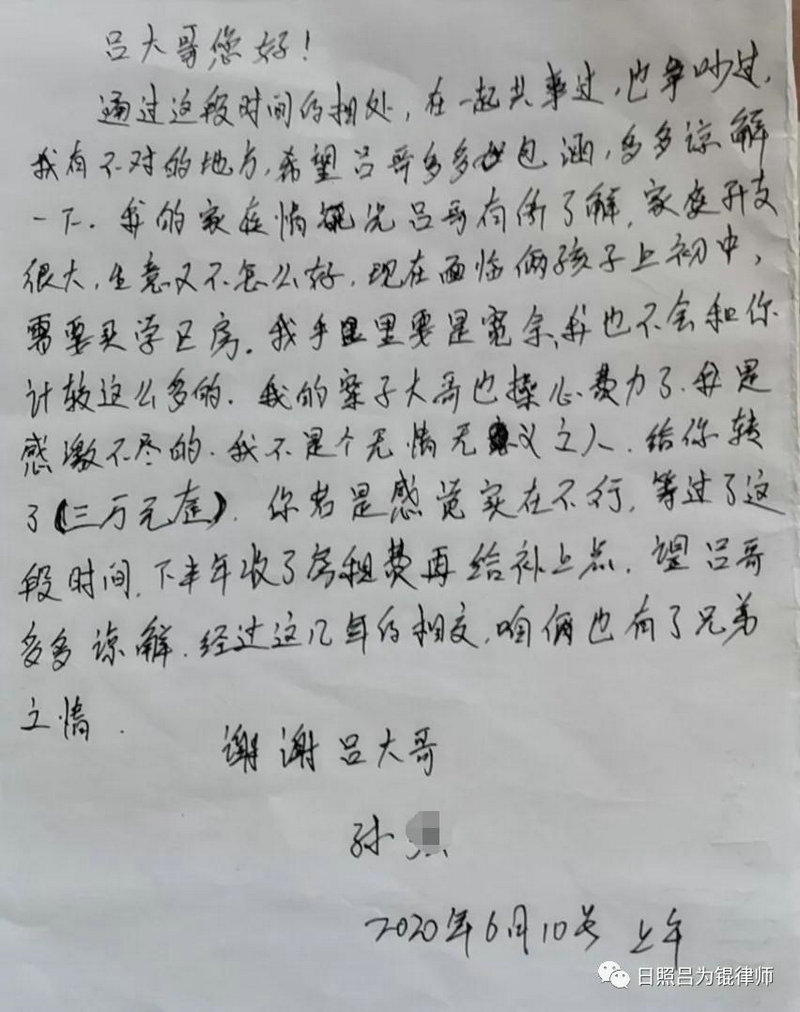 吕大哥您好！
通过这段时间的相处，在一起共事过，也争吵过，
我有不对的地方，希望吕哥多多包涵，多多谅解
一下．我的家庭情况吕哥有所了解，家庭开支
很大，生意又不怎么好．现在面临俩孩子上初中，
需要买学区房．我手里要是宽余、我也不会和你
计较这么多的．我的案子大哥也操心费力了．我是
感激不尽的．我不是个无情无义之人．给你转
了（三万元整）．你若是感觉实在不行，等过了这
段时间．下半年收了房租费再给补上点．望吕哥
多多谅解．经过这几年的相交．咱俩也有了兄弟
之情．
谢谢吕大哥
孙
2020年6月10号 上午
日照吕为锟律师